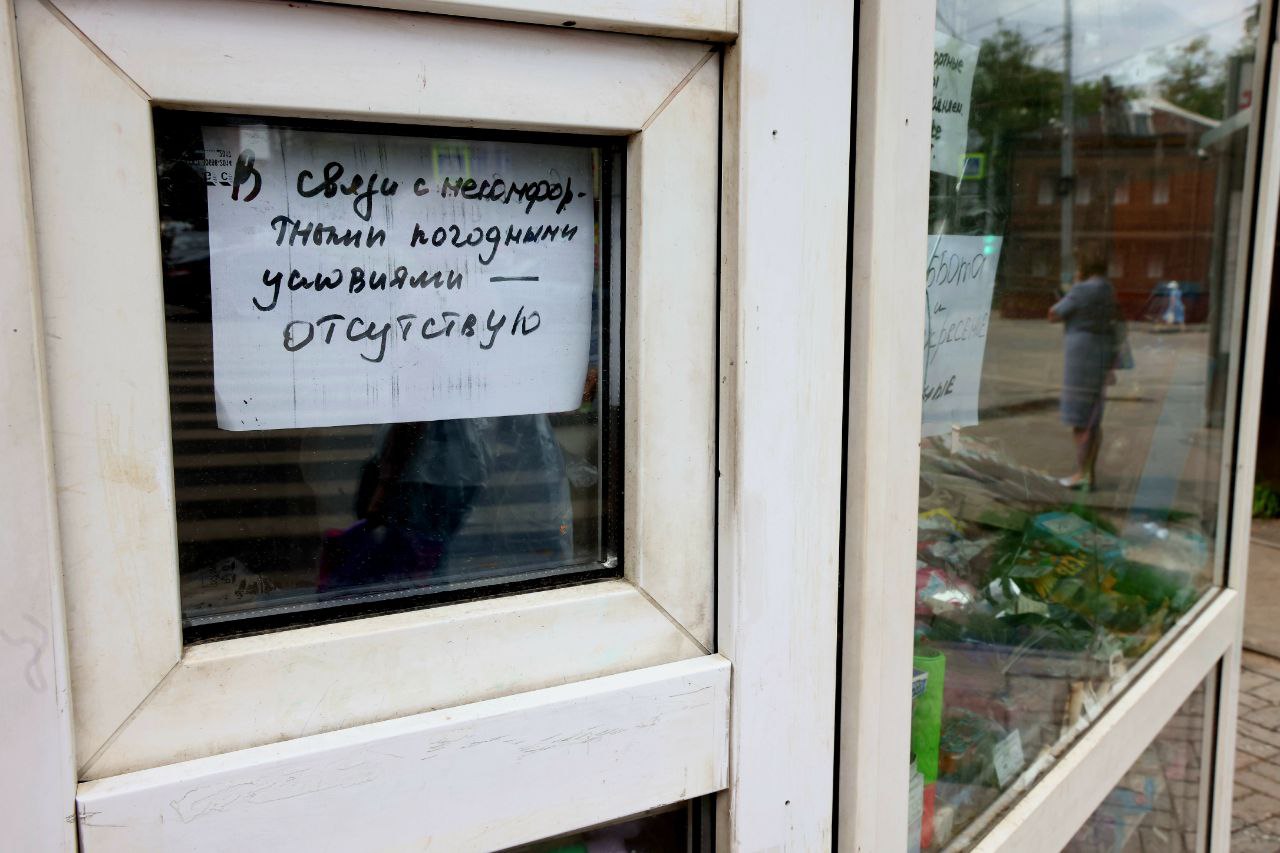 В связи с некомфор-
тными погодными
условиями —
отсутствую
ортные
ы
е
ббота
и
кресение
ные